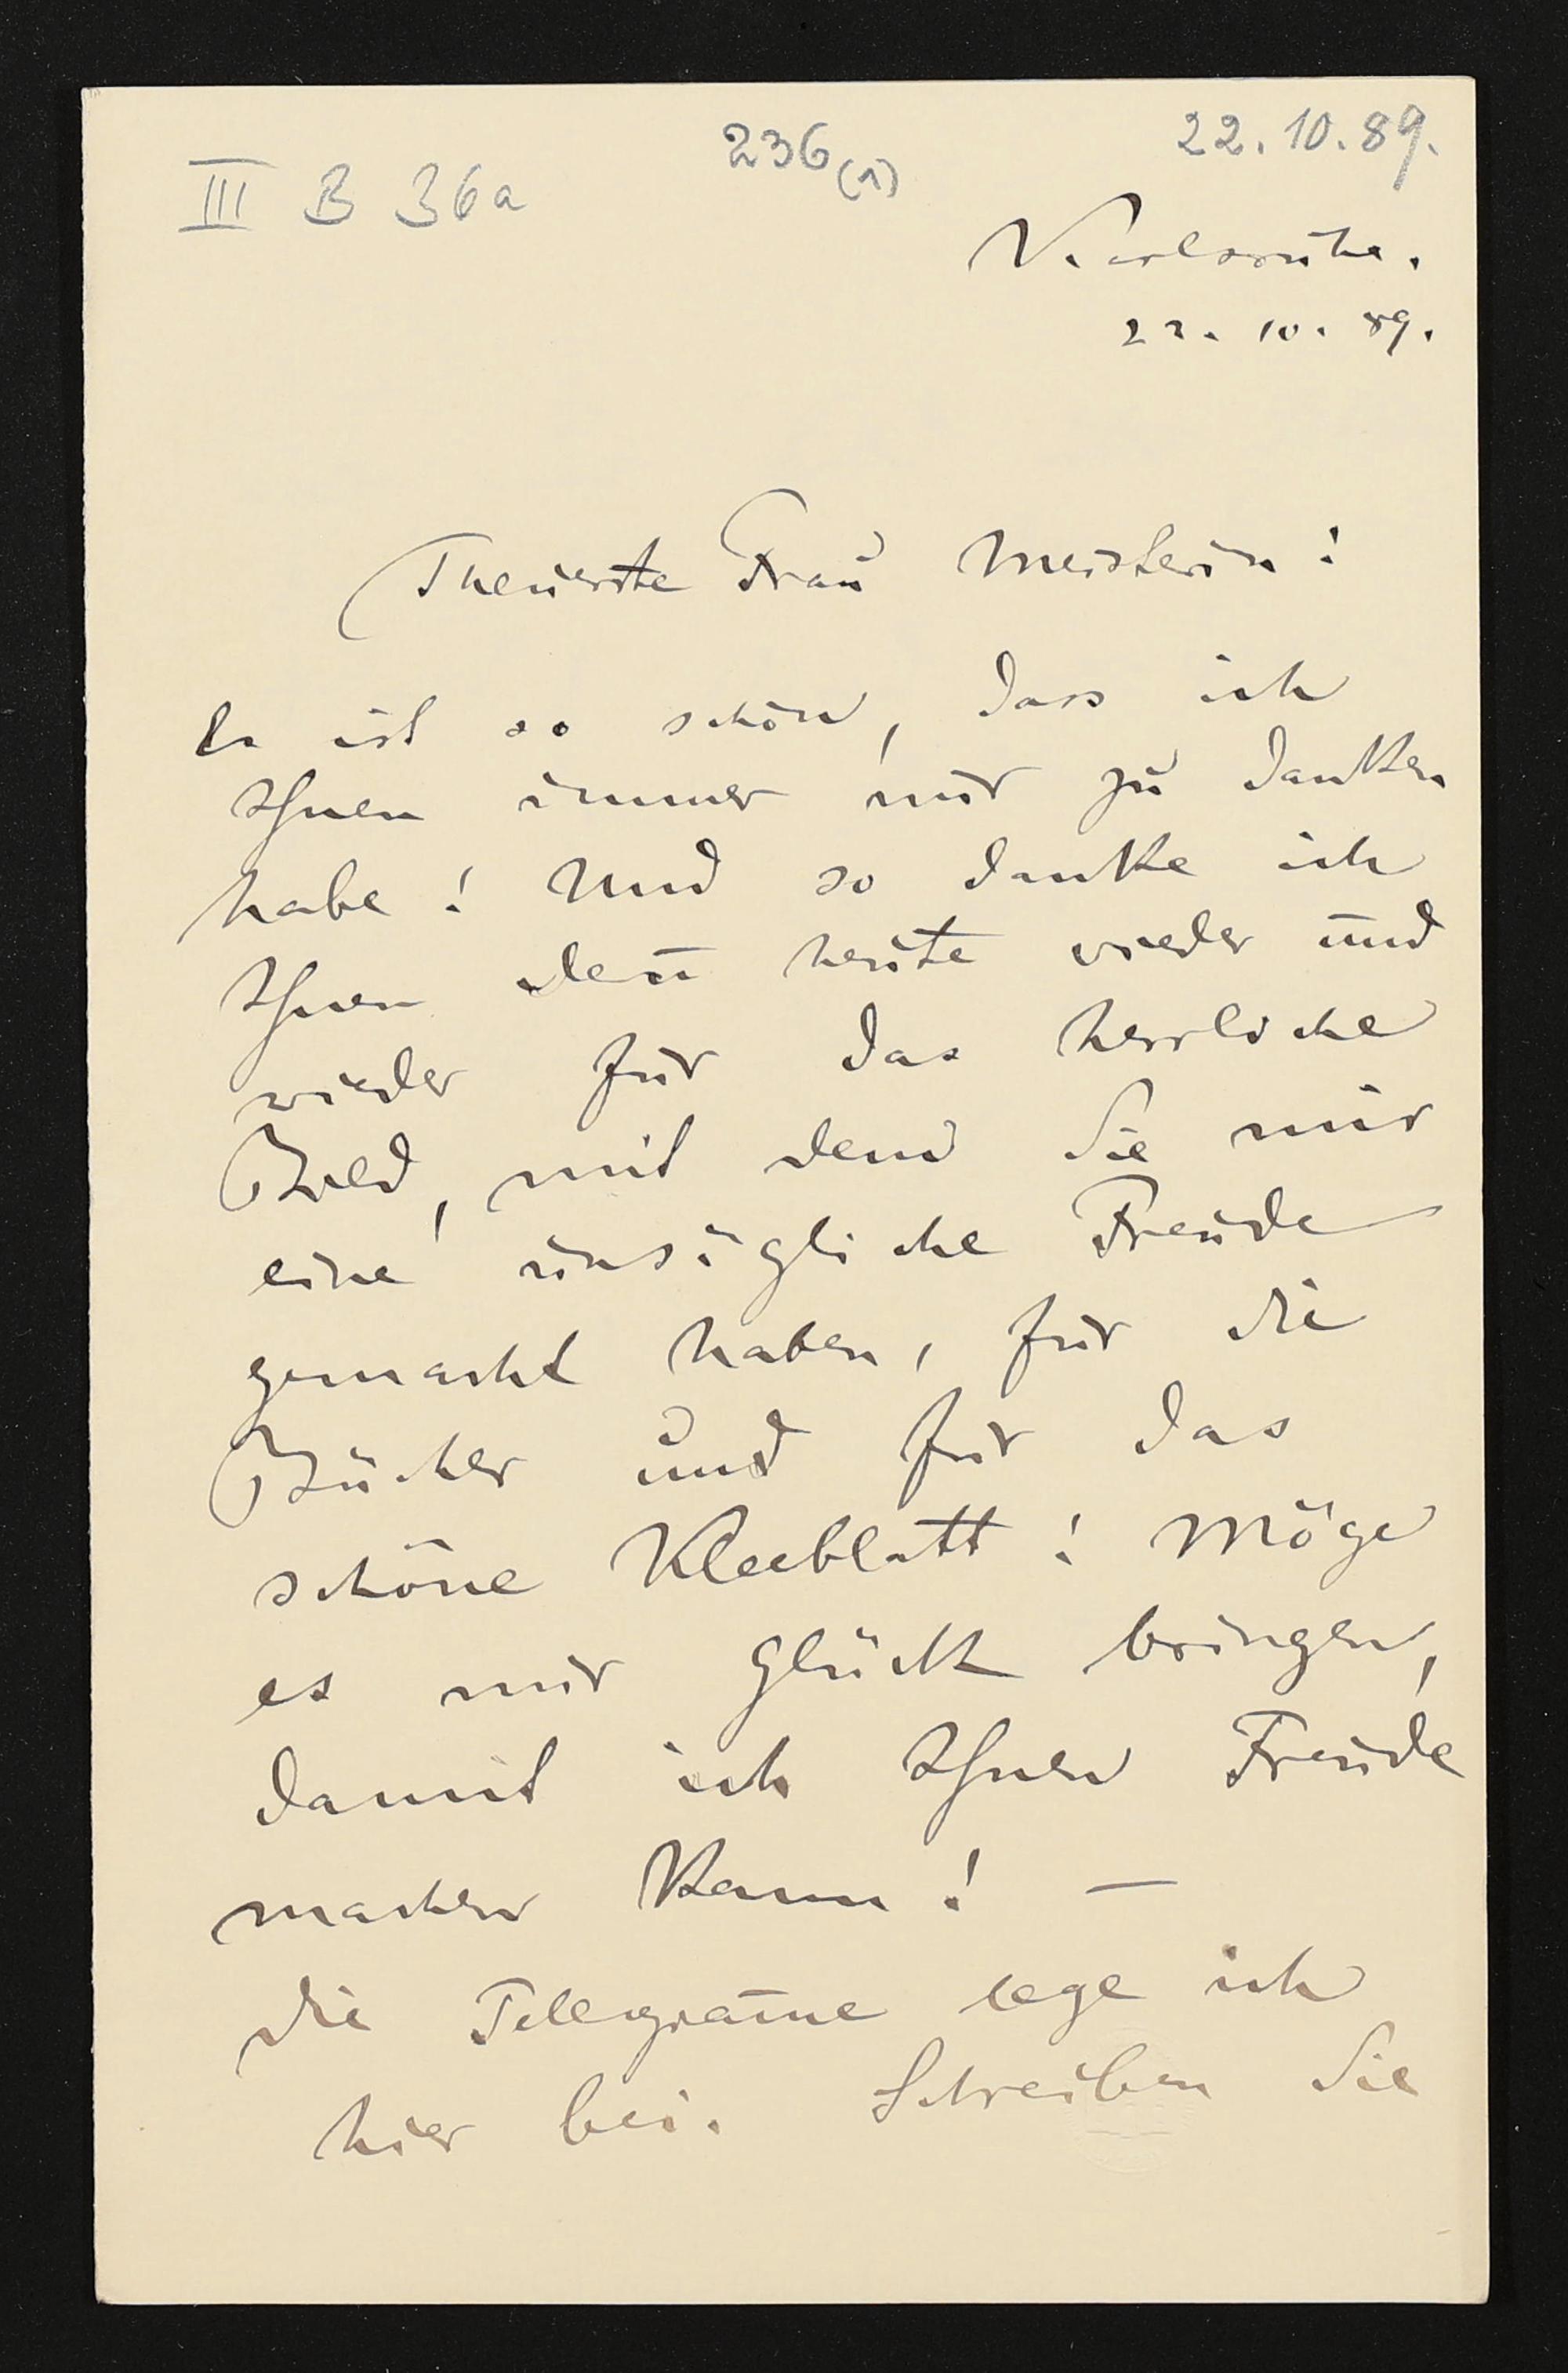 III B 36a
236(1)
22.10.89.
Karlsruhe.
22. 10. 89.
Theuerste Frau Meisterin!
Es ist so schön, dass ich
Ihnen immer nur zu danken
habe! Und so danke ich
Ihnen den̄ heute wieder und
wieder für das herrliche
Bild, mit dem Sie mir
eine unsägliche Freude
gemacht haben, für die
Bücher und für das
schöne Kleeblatt! Möge
es mir Glück bringen,
damit ich Ihnen Freude
machen kann! —
Die Telegram̄e lege ich
hier bei. Schreiben Sie